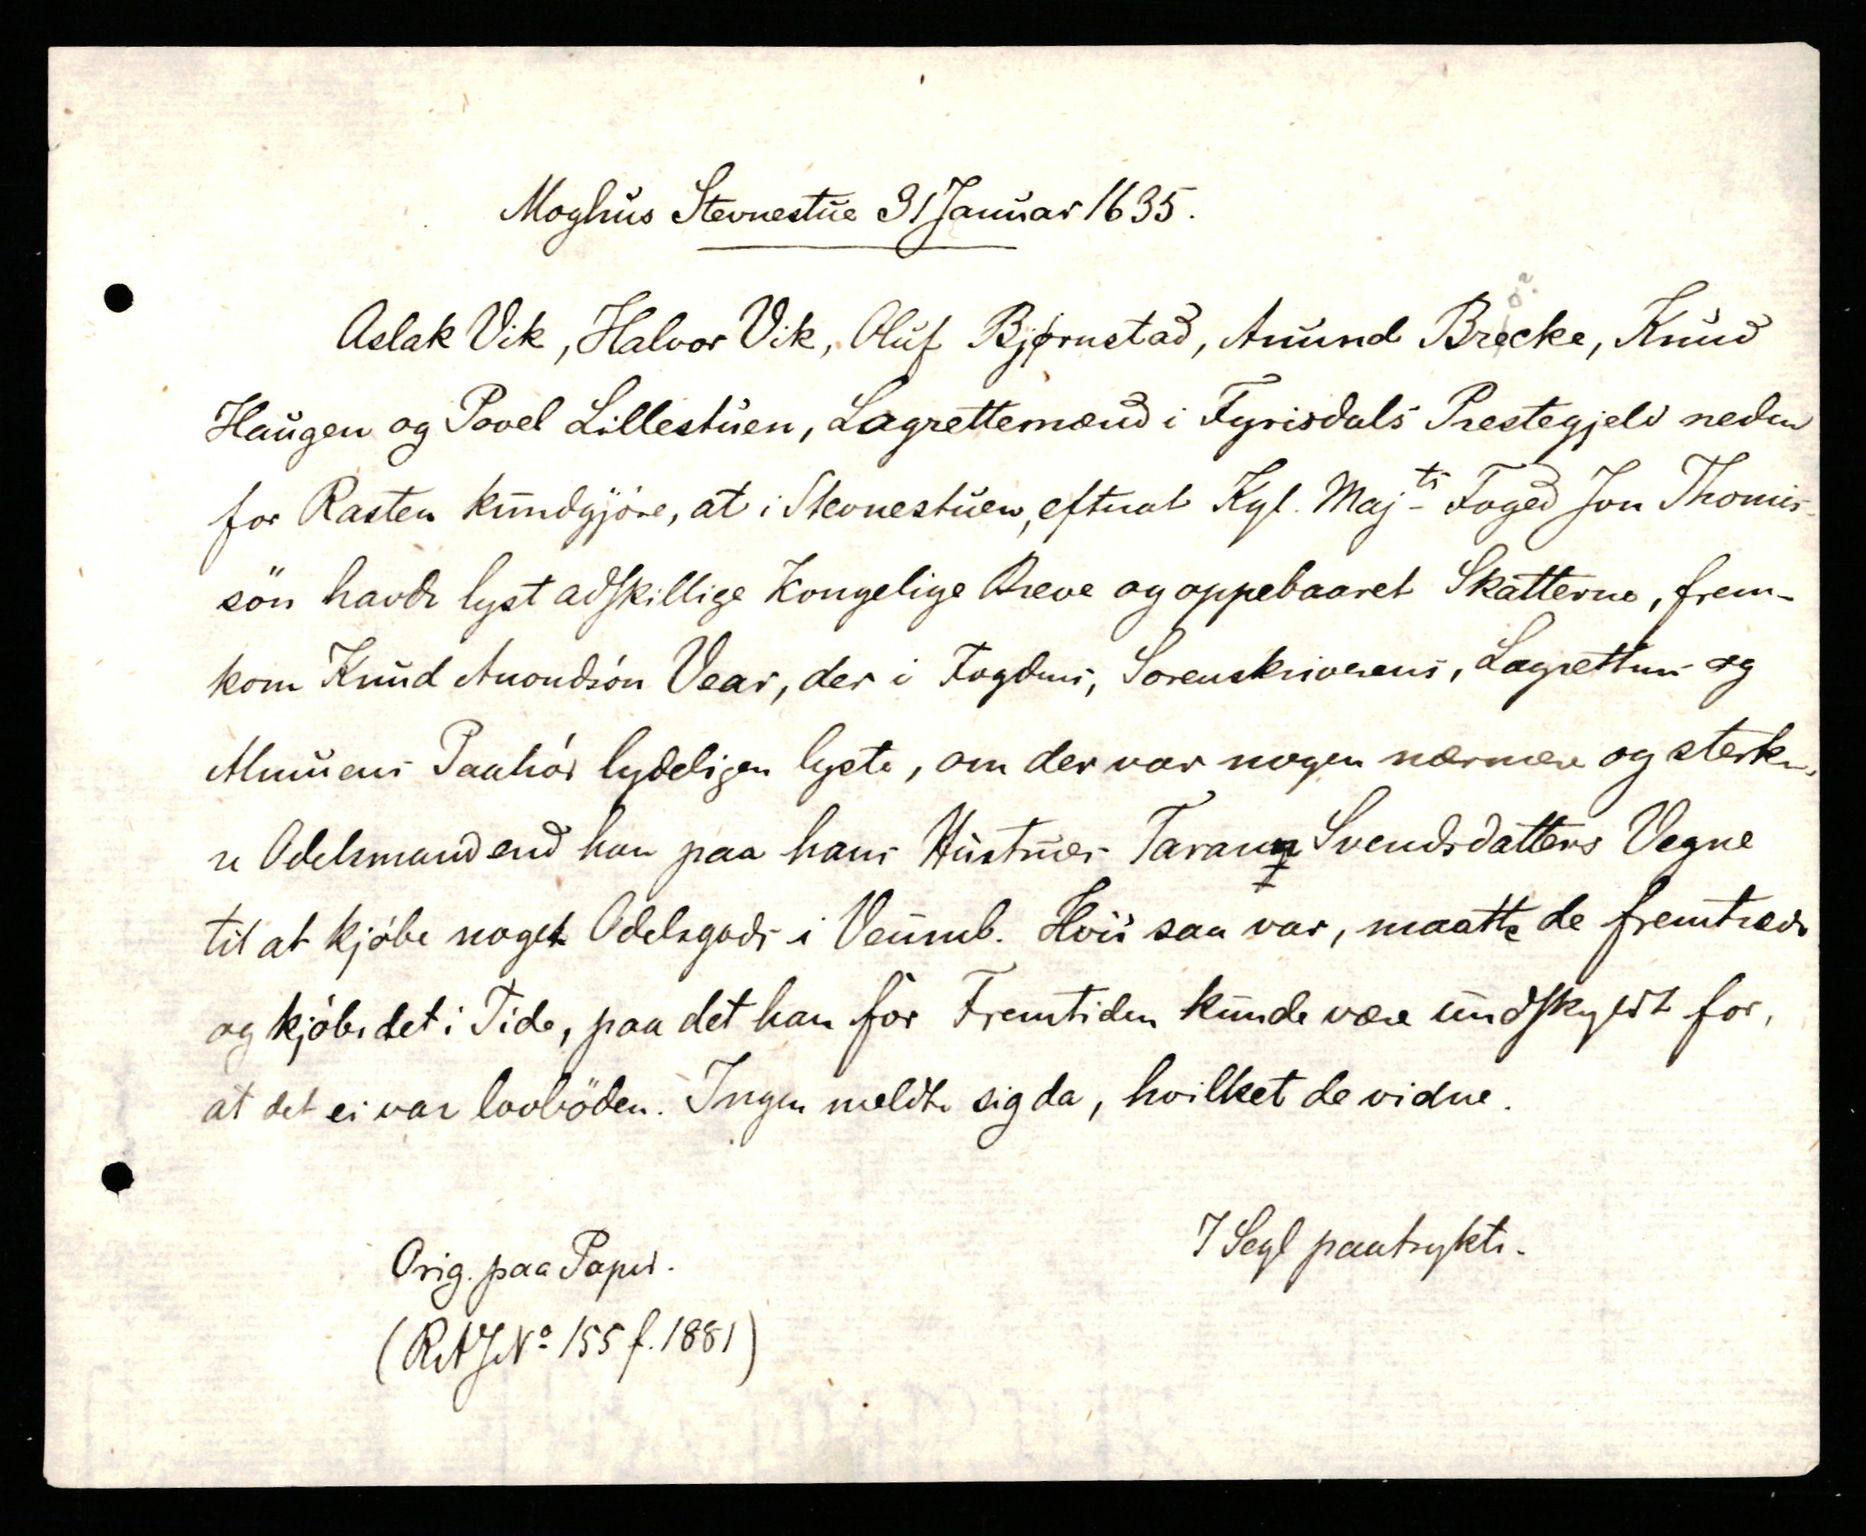 Moghus Stevnestue 31 Januar 1635.
Aslak Vik, Halvor Vik, Oluf Bjørnstad, Anund Brecke, Knud
Haugen og Povel Lillestuen, Lagrettemænd i Fyrisdals Prestegjeld neden
for Rasten kundgjöre, at i Stevnestuen, efterat Kgl. Maj-ts Foged Jon Thomis-
sön havde lyst adskillige Kongelige Breve og oppebaaret Skatterne, frem-
kom Knud Anondsön Vear, der i Fogdens, Sorenskriverens, Lagrettens og
Almuens Paahör lydeligen lyste, om der var nogen nærmere og sterke-
re Odelsmand end han paa hans Hustrues Svendsdatters Vegne
til at kjöbe noget Odelsgods i Veumb. Hvis saa var, maatte de fremtræde
og kjöbe det i Tide, paa det han for Fremtiden kunde være undskyldt for,
at det ei var lovböden. Ingen meldte sig da, hvilket de vidne.
7 Segl paatrykte.
Orig. paa Papir.
(RAJNº 155 f. 1881)